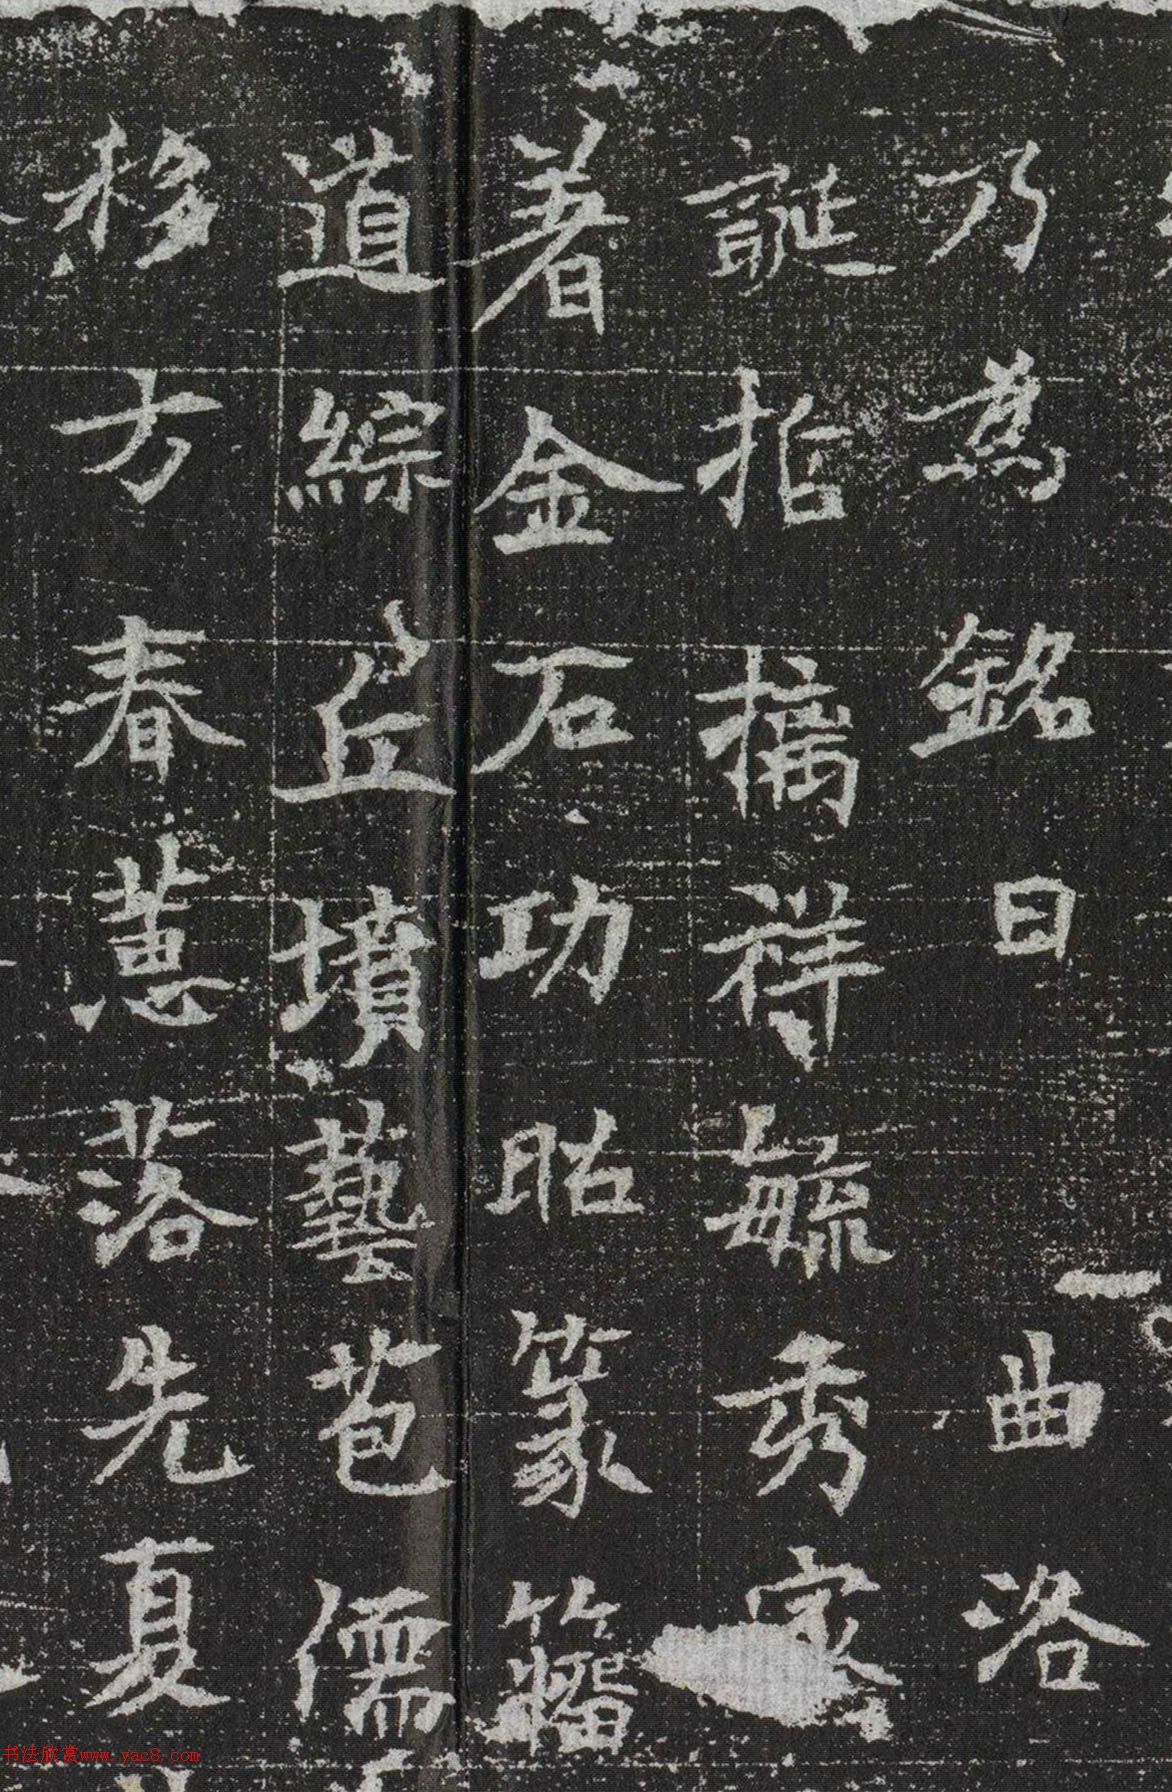 乃為銘曰　曲洛
誕指摛祥毓秀
著金石功昭篆籀
道綜丘墳藝苞儒
移方春蕙落先夏
书法欣赏www.yac8.com